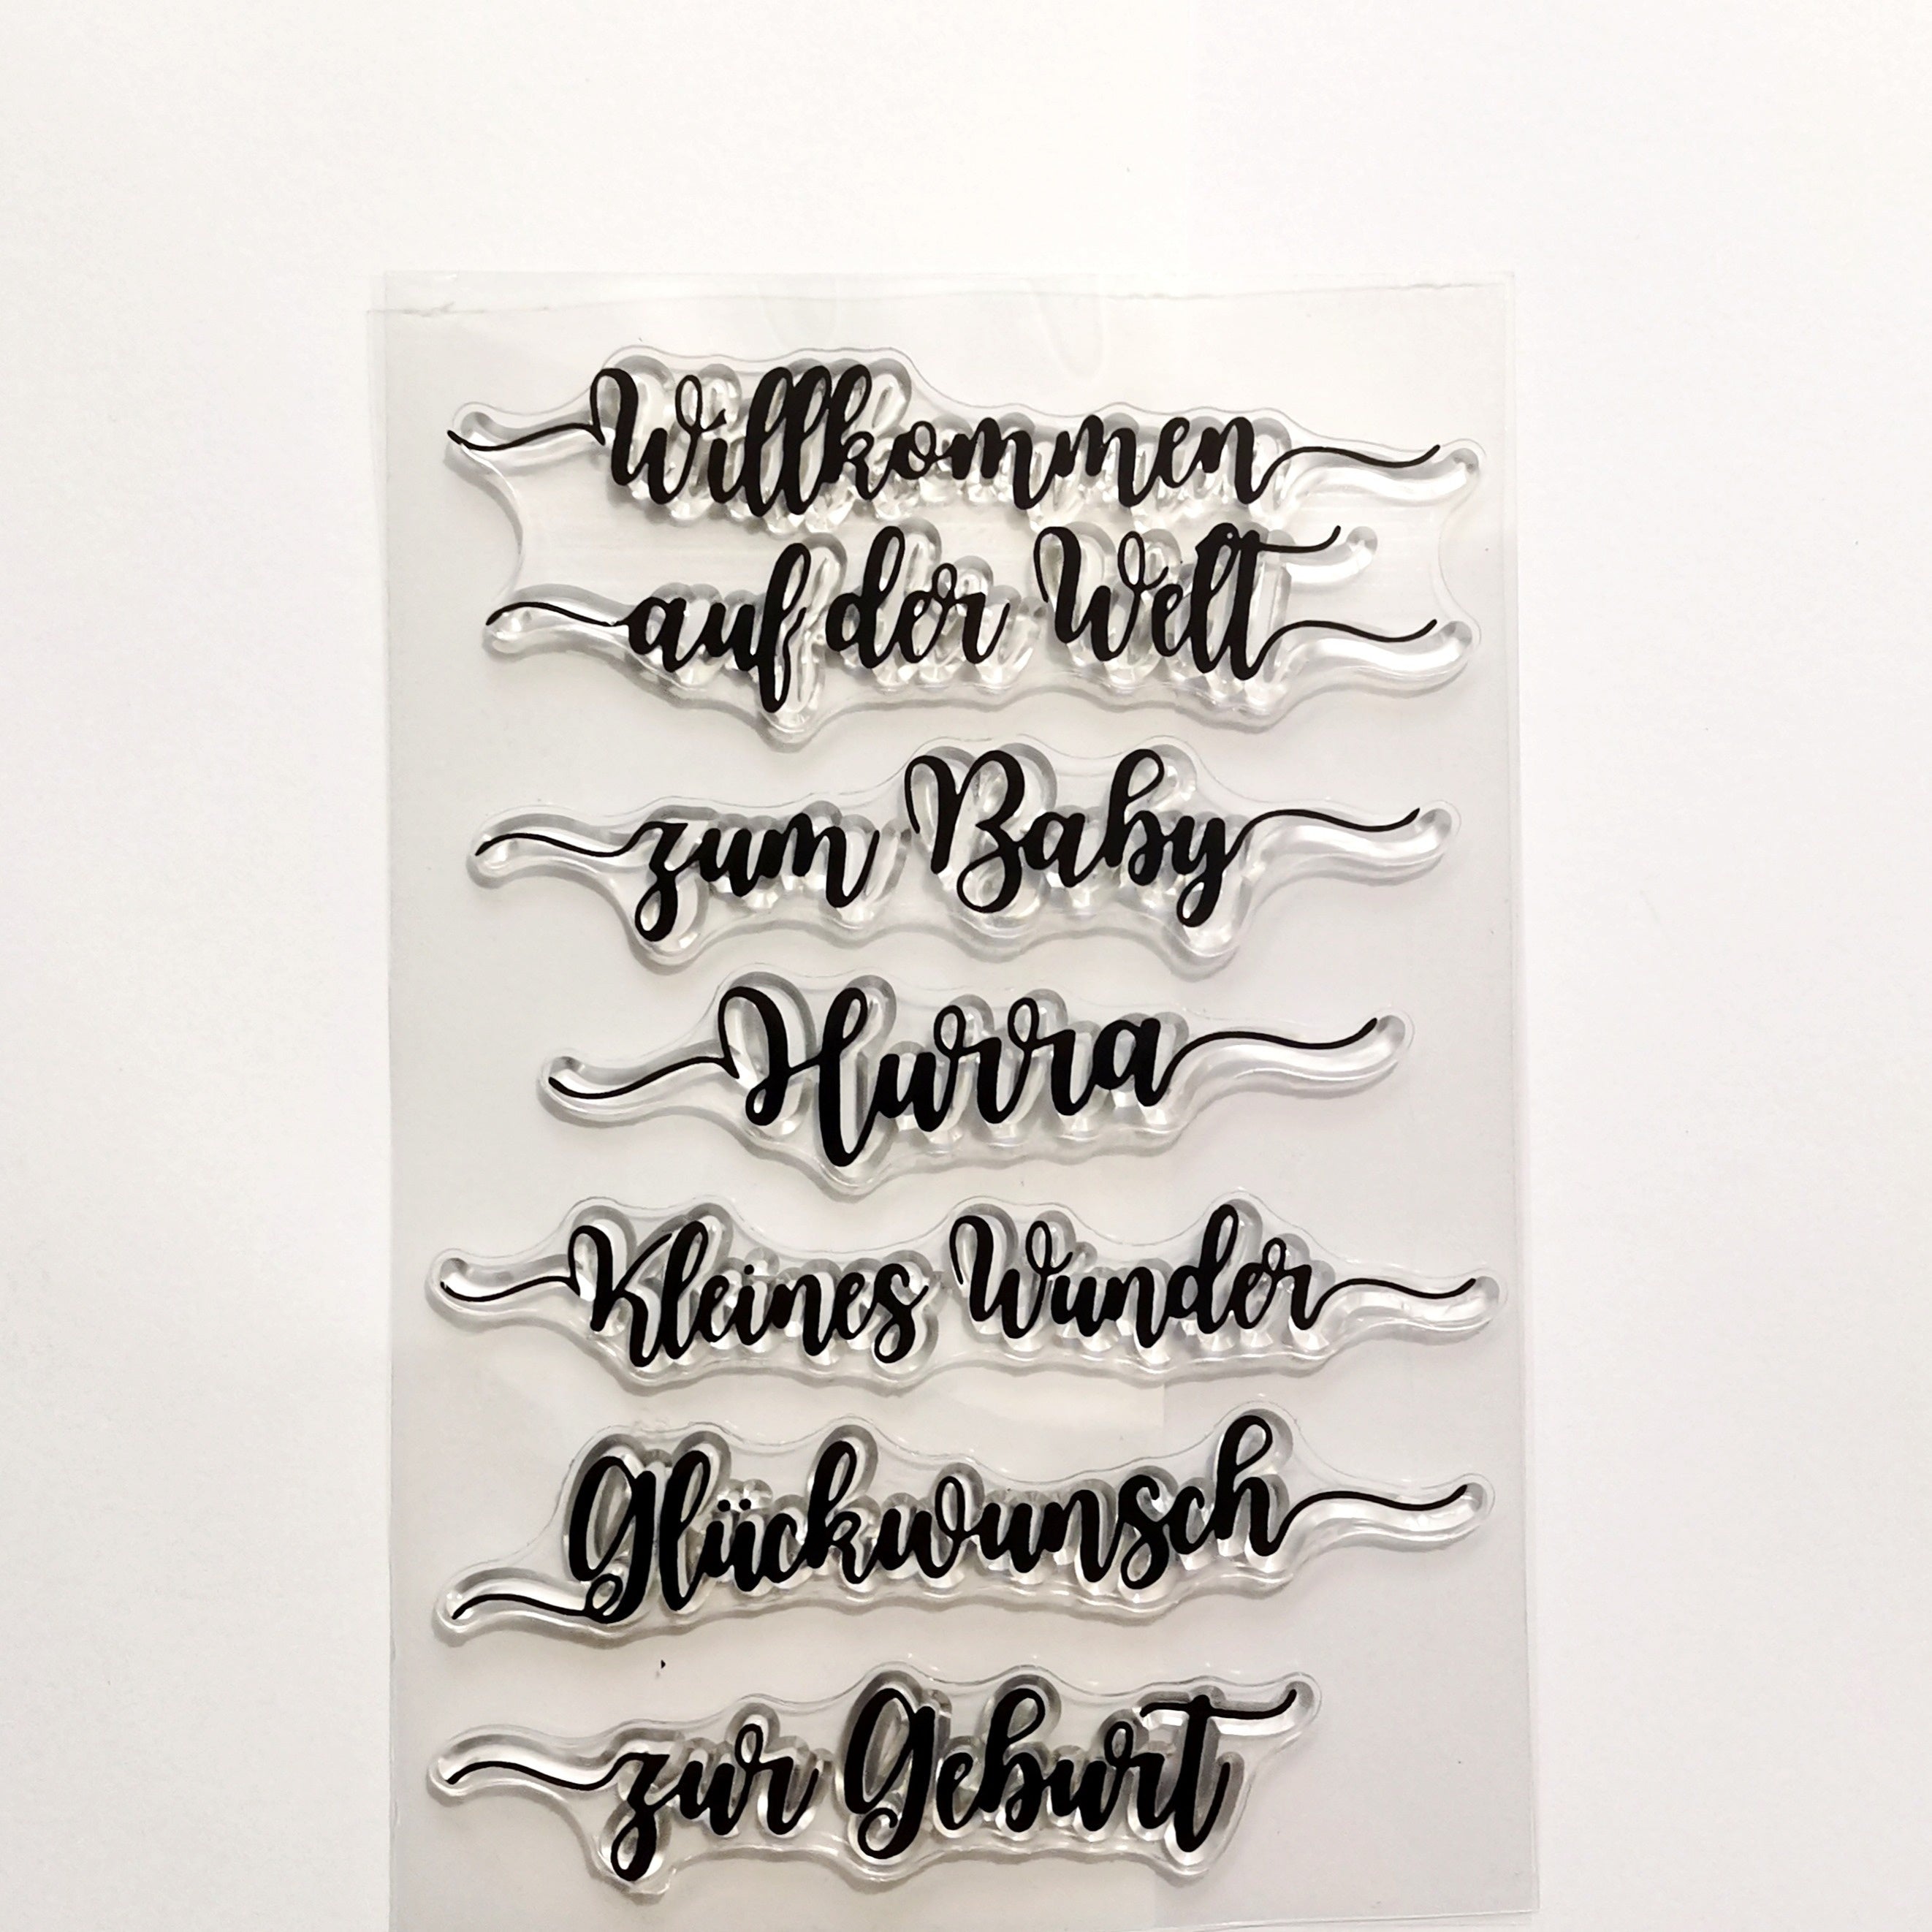 Willkommen
auf der Welt
zum Baby
Hurra
Kleines Wunder
Glückwunsch
zur Geburt